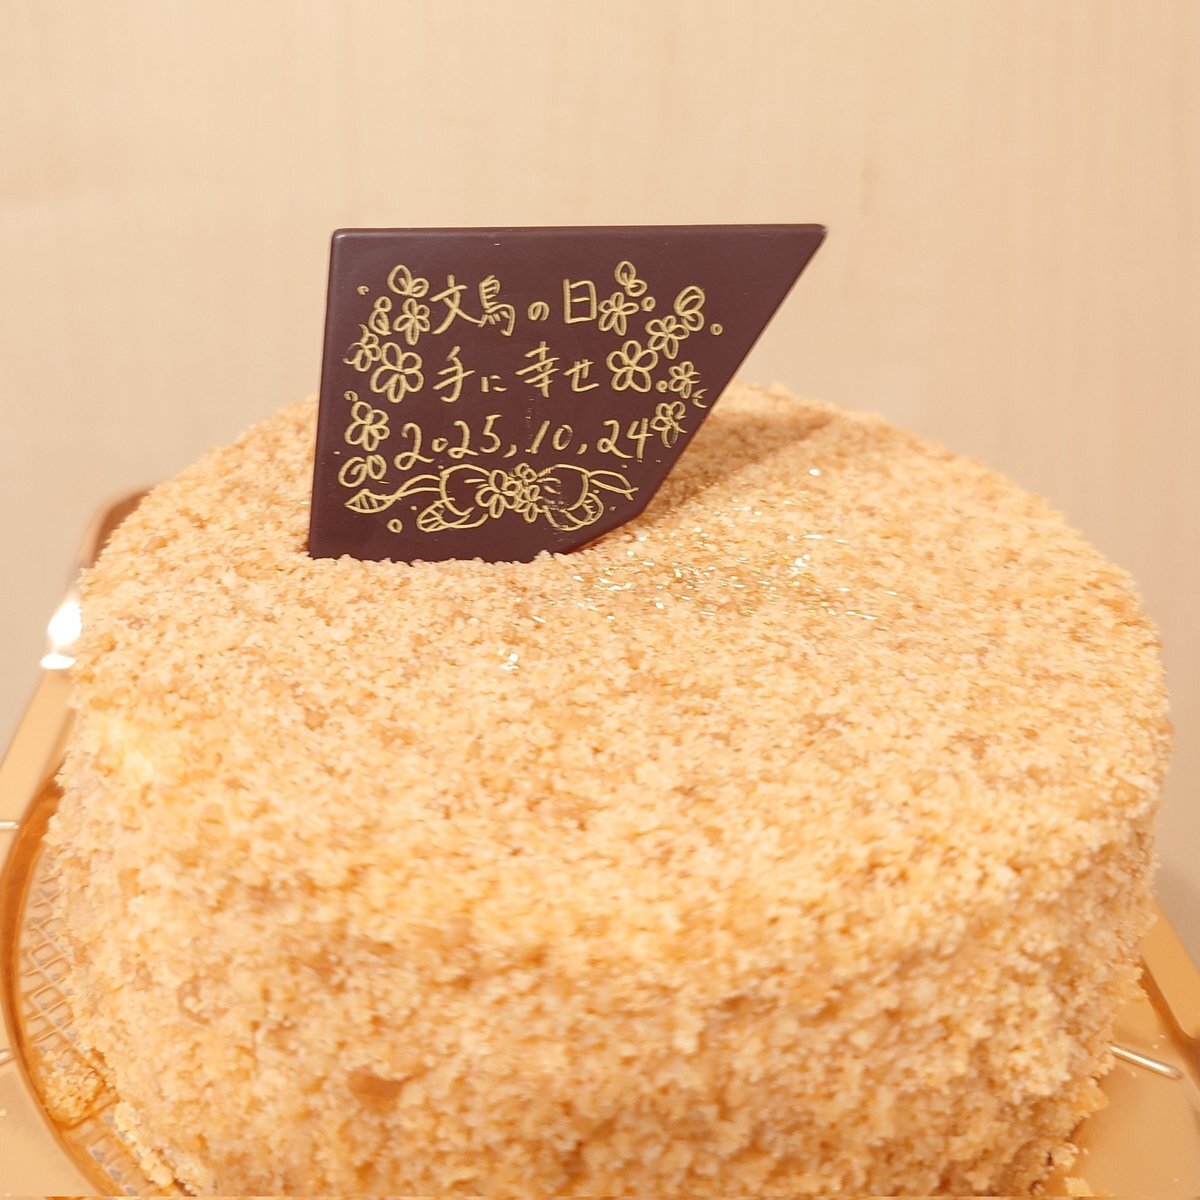 文鳥の日
手に幸せ
2025,10,24